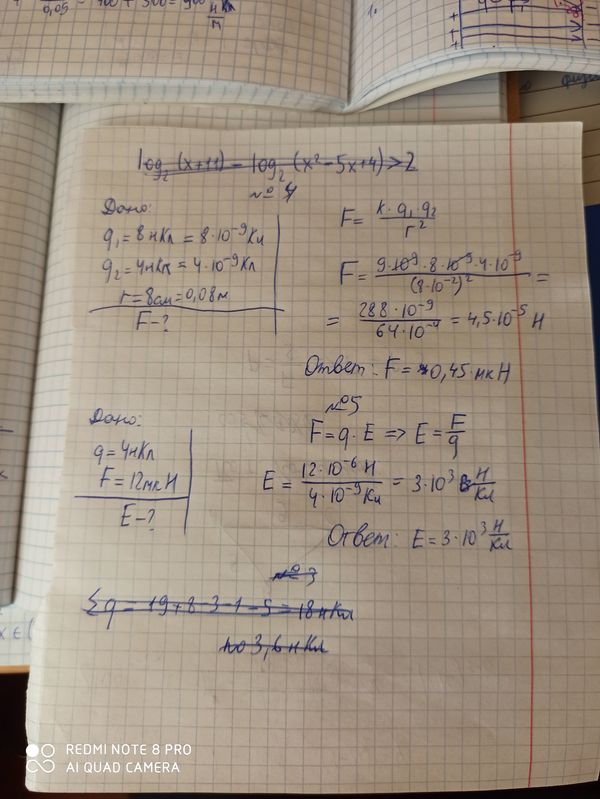 0,05 = 400 + 500 = 900 Н/м
1.
log₂(x+11) – log₂(x²–5x+4) > 2
№4
Дано:
q₁ = 8нКл = 8·10⁻⁹Кл
q₂ = 4нКл = 4·10⁻⁹Кл
r = 8см = 0,08м
F – ?
F = k·q₁·q₂/r²
F = 9·10⁹·8·10⁻⁹·4·10⁻⁹/(8·10⁻²)² =
= 288·10⁻⁹/64·10⁻⁴ = 4,5·10⁻⁵ Н
Ответ: F = 0,45·мкН
№5
Дано:
q = 4нКл
F = 12мкН
E – ?
F = q·E => E = F/q
E = 12·10⁻⁶Н/4·10⁻⁹Кл = 3·10³ Н/Кл
Ответ: E = 3·10³ Н/Кл
№3
Σq = 19+8–3–1–5 = 18нКл
по 3,6 нКл
x ∈ (
REDMI NOTE 8 PRO
AI QUAD CAMERA